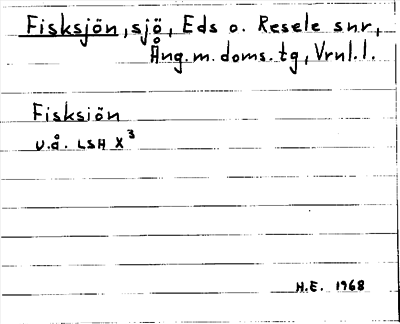 Fisksjön, sjö, Eds o. Resele snr,
Ång.m.doms.tg, Vrnl.l.
Fisksjön
u.å. LSH X³
H.E. 1968